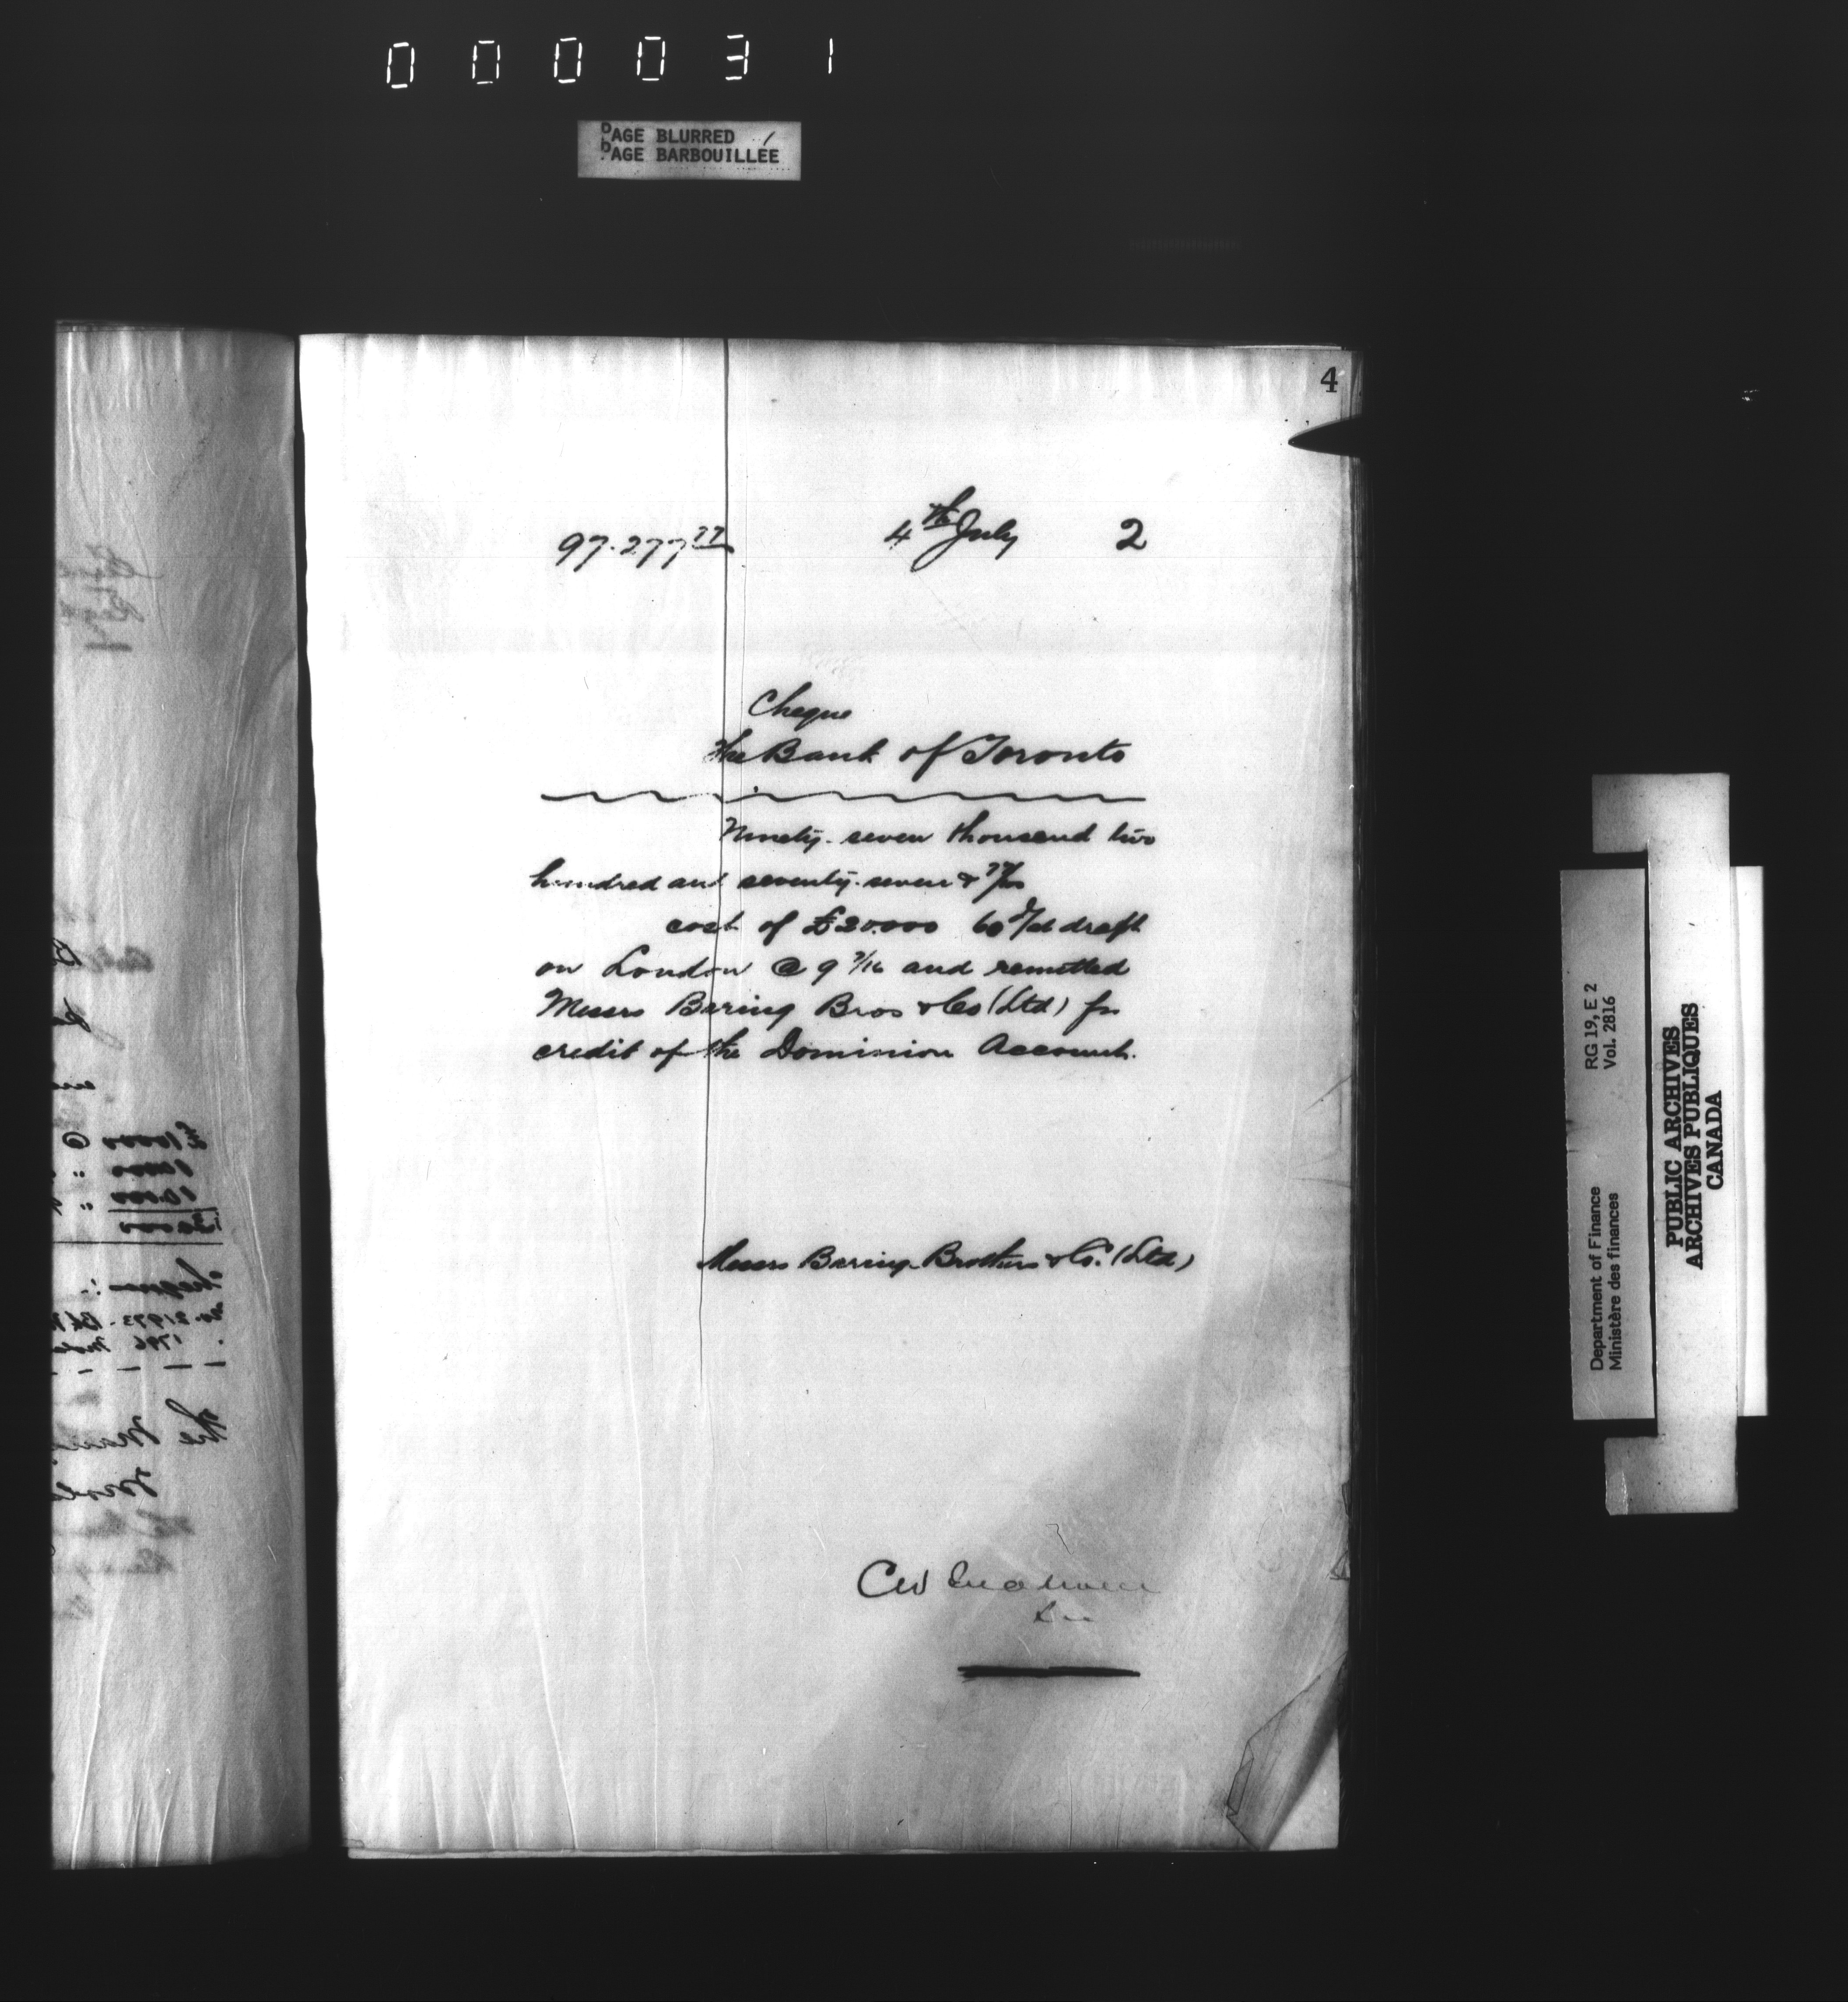 000031
PAGE BLURRED
PAGE BARBOUILLÉE
4
97.277 77
4th July 2
Cheque
The Bank of Toronto
Ninety-seven thousand two
hundred and seventy-seven & 77/100
cost of £20.000 60 d/st draft
on London @ 9 7/16 and remitted
Messrs Baring Bros & Co (Ltd) for
credit of the Dominion Account.
Messrs Baring Brothers & Co. (Ltd)
CW
£10000 @
10000 "
10000 "
30000
Cheques :-
No. 21973 -
1796
The
RG 19, E 2
Vol. 2816
Department of Finance
Ministère des finances
PUBLIC ARCHIVES
ARCHIVES PUBLIQUES
CANADA